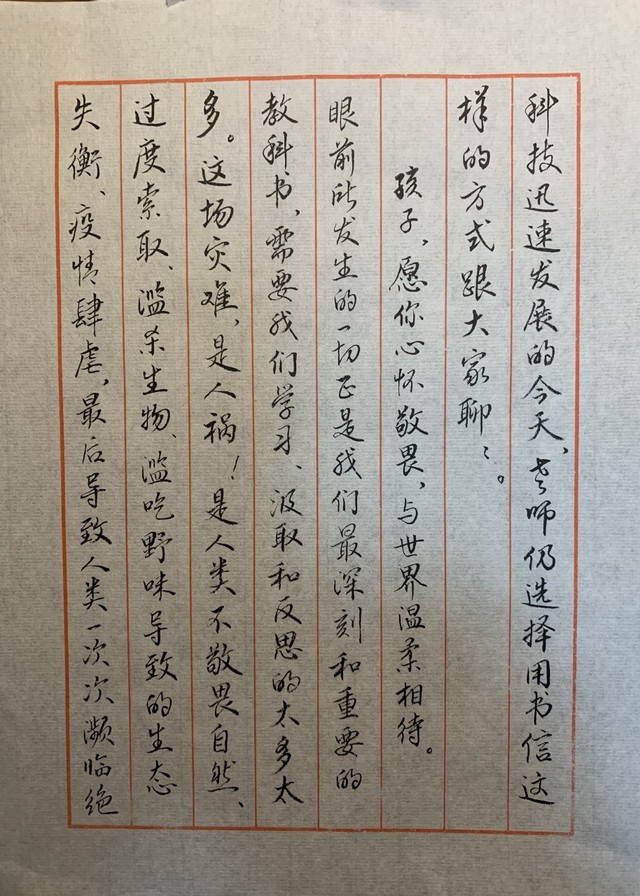 科技迅速发展的今天，老师仍选择用书信这
样的方式跟大家聊〻。
孩子，愿你心怀敬畏，与世界温柔相待。
眼前所发生的一切正是我们最深刻和重要的
教科书，需要我们学习、汲取和反思的太多太
多。这场灾难，是人祸！是人类不敬畏自然、
过度索取、滥杀生物、滥吃野味导致的生态
失衡、疫情肆虐，最后导致人类一次次濒临绝